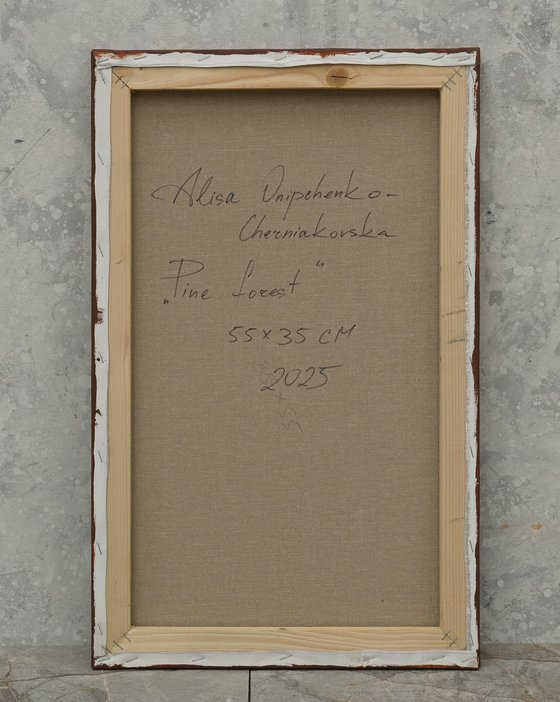 Alisa Onipchenko-
Cherniakovska
„Pine forest“
55x35 CM
2025